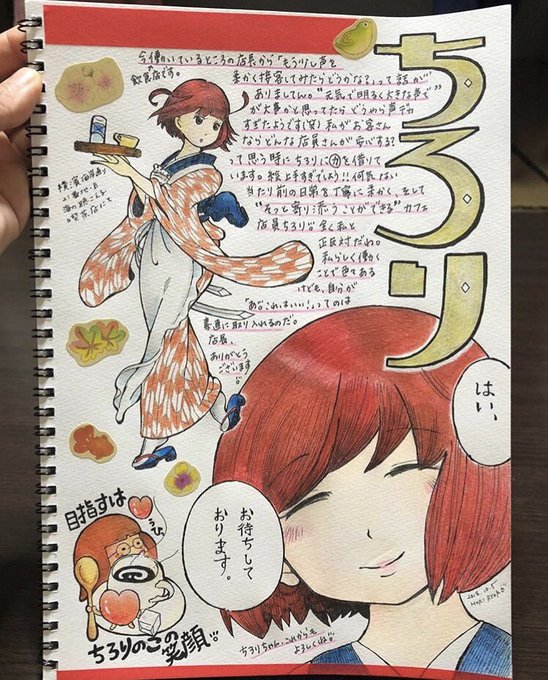 ちろり
今働いているところの店長から“もう少し声を
飲食店です。
柔かく接客してみたらどうかな？”って話が
ありましてん。“元気で明るく大きな声で”
が大事かと思ってたらどうやら声デカ
すぎたようです(笑) 私がお客さん
ならどんな店員さんが安心する？
って思う時にちろりに力を借りて
います。絵上手すぎでしょう!!何気ない
当たり前の日常を丁寧に柔かく、そして
“そっと寄り添うことができる”カフェ
店員ちろりは全く私と
正反対だわ。
私らしく働く
ことで色々ある
けども、自分が
“あ。これはいい！”ってのは
素直に取り入れるのだ。
店長、
ありがとう
ございます
横濱海岸通り
海の聴こえる
喫茶店にて
はい、
お待ちして
おります。
目指すは
うひ。
ちろりのこの
笑顔!!
ちろりちゃん、これからも
よろしくね。
2018.10.5